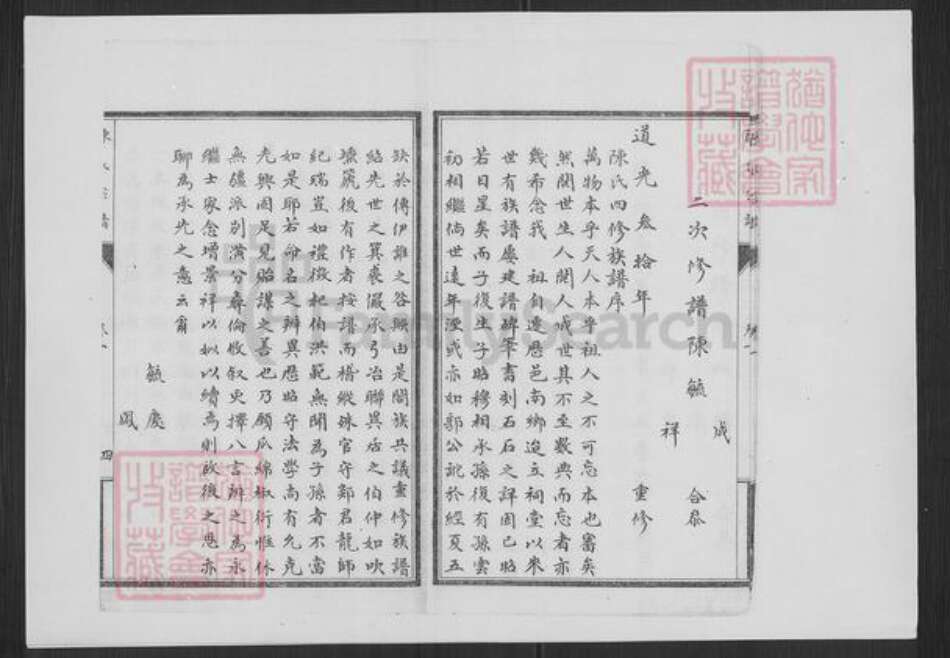 二次修譜陳毓
成
祥
合
重修
道光叁拾年
陳氏四修族譜序
萬物本乎天人本乎祖人之不可忘本也審矣
然閱世生人閱人成世其不至數典而忘者亦
幾希念我 祖自遷歷邑南鄉迨立祠堂以來
世有族譜屢建譜碑筆書刻石石之詳固已昭
若日星矣而子復生子昭穆相承孫復有孫雲
初相繼倘世遠年湮或亦如郭公訛於經夏五
缺於傳伊誰之咎歟由是闔族共議重修族譜
紹先世之箕裘儼承弓冶聯異居之伯仲如吹
壎篪後有作者按譜而稽縱殊官守鄭君龍師
紀瑞豈如禮徵杞伯洪範無聞為子孫者不當
如是耶若命名之辨異歷昭守法學尚有允克
光興固足見貽謀之善也乃願瓜綿椒衍惟休
無疆派別潢分彝倫攸叙更擇八言辨之為永
繼士家念增景祥以似以續為則啟後之思亦
聊為承先之意云爾
毓
慶
鳳
陳氏宗譜
卷一
四
猶他家譜學會收藏
猶他家譜學會收藏
FamilySearch